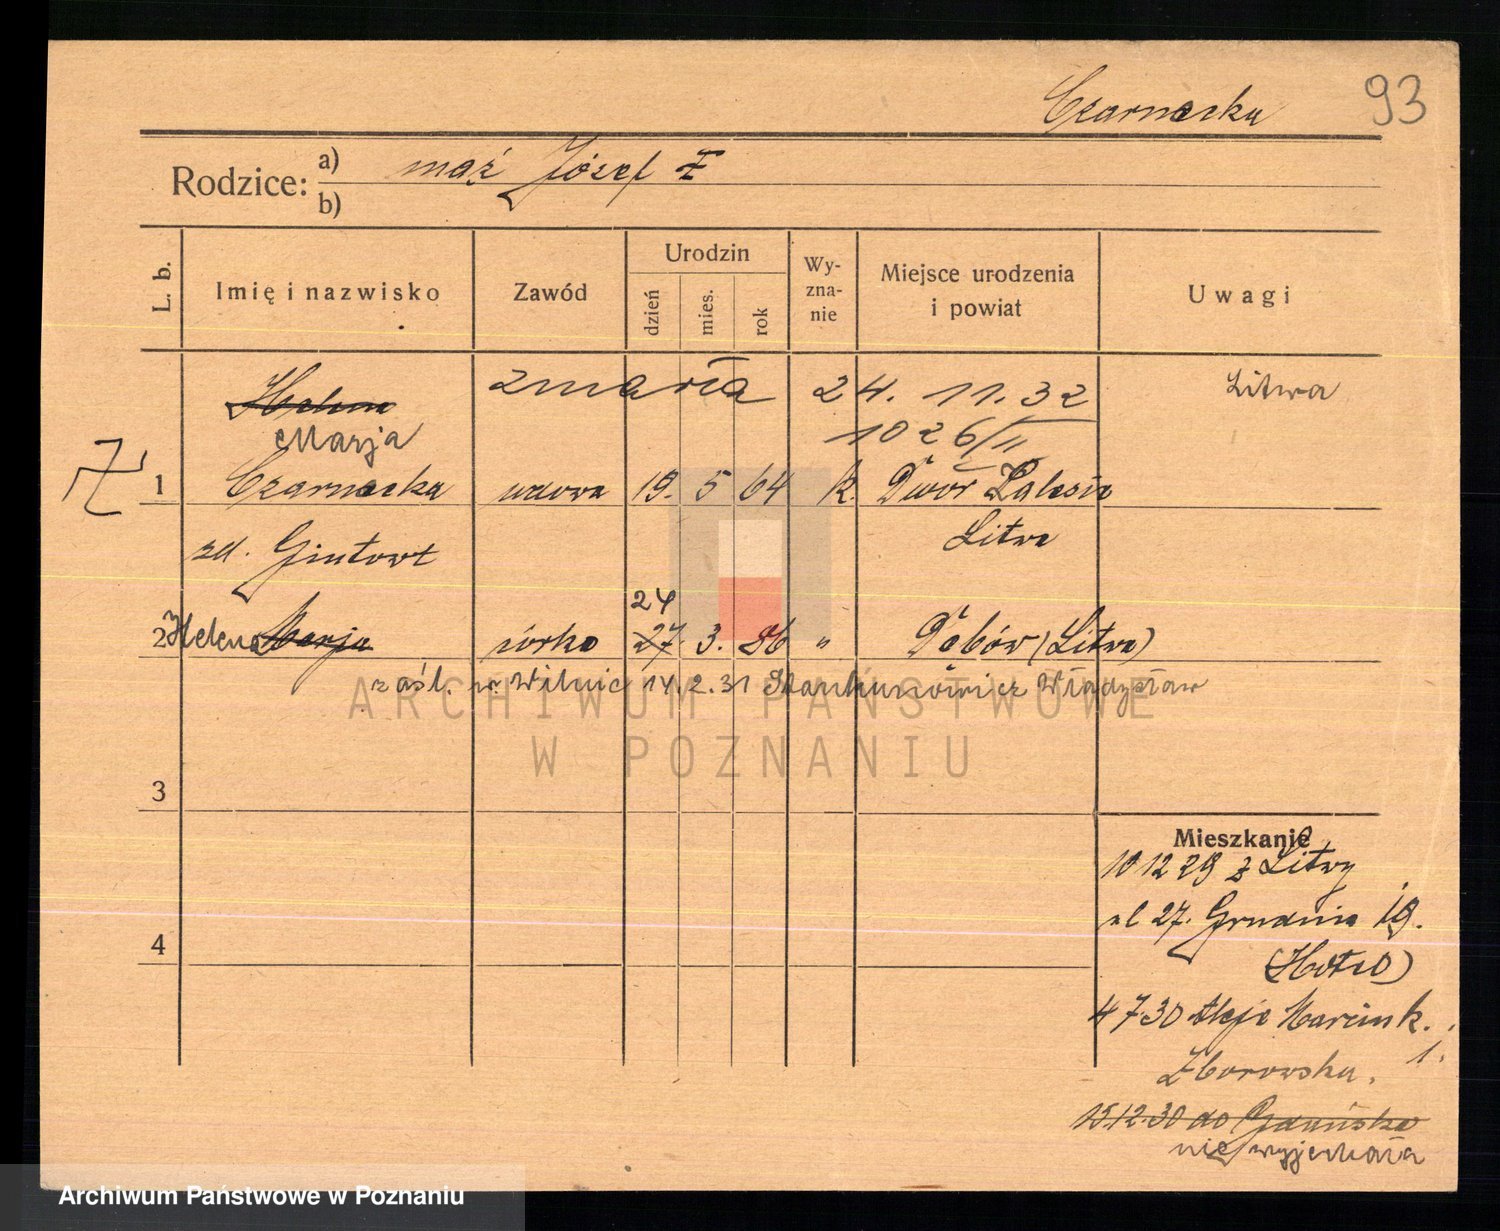 Czarnecka 93
Rodzice: a) mąż Józef
b)
L. b. Imię i nazwisko Zawód Urodzin dzień mies. rok Wy-zna-nie Miejsce urodzenia i powiat Uwagi
Helena zmarła 24. 11. 32 Litwa
Marja 1026/II
1 Czarnecka wdowa 19. 5 64 k. Dwór Zalesie
zd. Gintowt Litwa
24
2 Helena Marja córka 27. 3. 86 " Dobów (Litwa)
zaśl. w Wilnie 14.2.31 Stankunowicz Władysław
3
Mieszkanie
10 12 29 z Litwy
4
ul 27. Grudnia 19.
(Hotel)
4 7 30 Aleje Marcink.
1.
Zborowska.
15.12.30 do Gdańska
nie wyjechała
ARCHIWUM PAŃSTWOWE
W POZNANIU
Archiwum Państwowe w Poznaniu